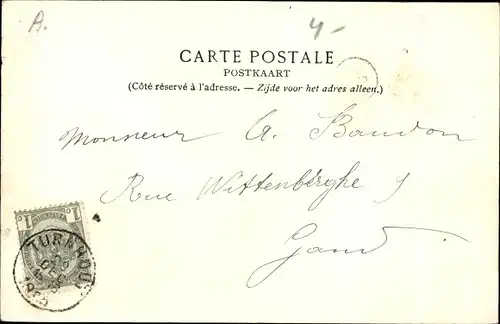 A.
4-
CARTE POSTALE
POSTKAART
(Côté réservé à l'adresse. — Zijde voor het adres alleen.)
Monsieur A. Baudon
Rue Wittenberghe 9
Gand
1 1
TURNHOUT
DEC